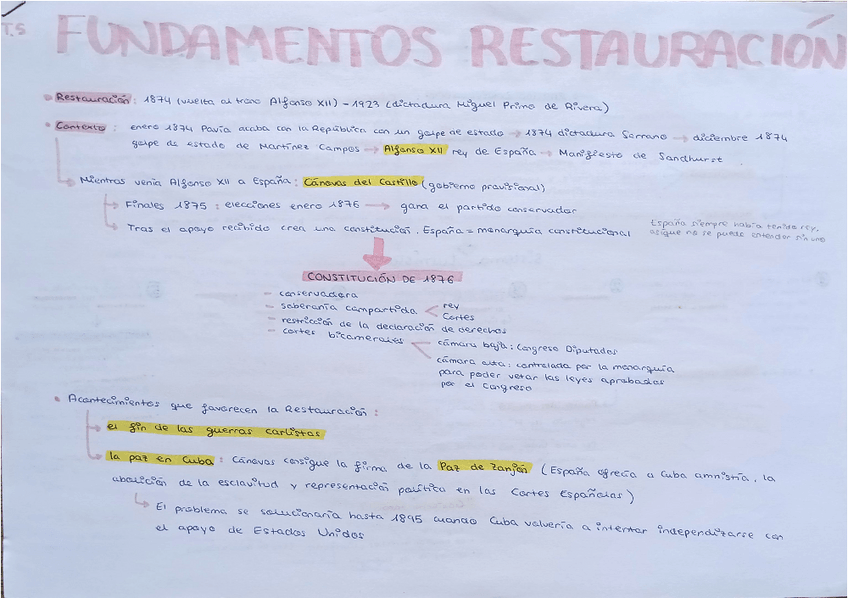 T.5
FUNDAMENTOS RESTAURACIÓN
Restauración: 1874 (vuelta al trono Alfonso XII) - 1923 (dictadura Miguel Primo de Rivera)
Contexto: enero 1874 Pavía acaba con la República con un golpe de estado → 1874 dictadura Serrano → diciembre 1874
golpe de estado de Martínez Campos → Alfonso XII rey de España → Manifiesto de Sandhurst
Mientras venía Alfonso XII a España: Cánovas del Castillo (gobierno provisional)
Finales 1875: elecciones enero 1876 → gana el partido conservador
Tras el apoyo recibido crea una constitución. España = monarquía constitucional
España siempre había tenido rey,
asique no se puede entender sin uno
CONSTITUCIÓN DE 1876
- conservadora
- soberanía compartida < rey
Cortes
- restricción de la declaración de derechos
- cortes bicamerales < cámara baja: Congreso Diputados
cámara alta: controlada por la monarquía
para poder vetar las leyes aprobadas
por el Congreso
• Acontecimientos que favorecen la Restauración:
el fin de las guerras carlistas
la paz en Cuba: Cánovas consigue la firma de la Paz de Zanjón (España ofrecía a Cuba amnistía, la
abolición de la esclavitud y representación política en las Cortes Españolas)
El problema se solucionaría hasta 1895 cuando Cuba volvería a intentar independizarse con
el apoyo de Estados Unidos